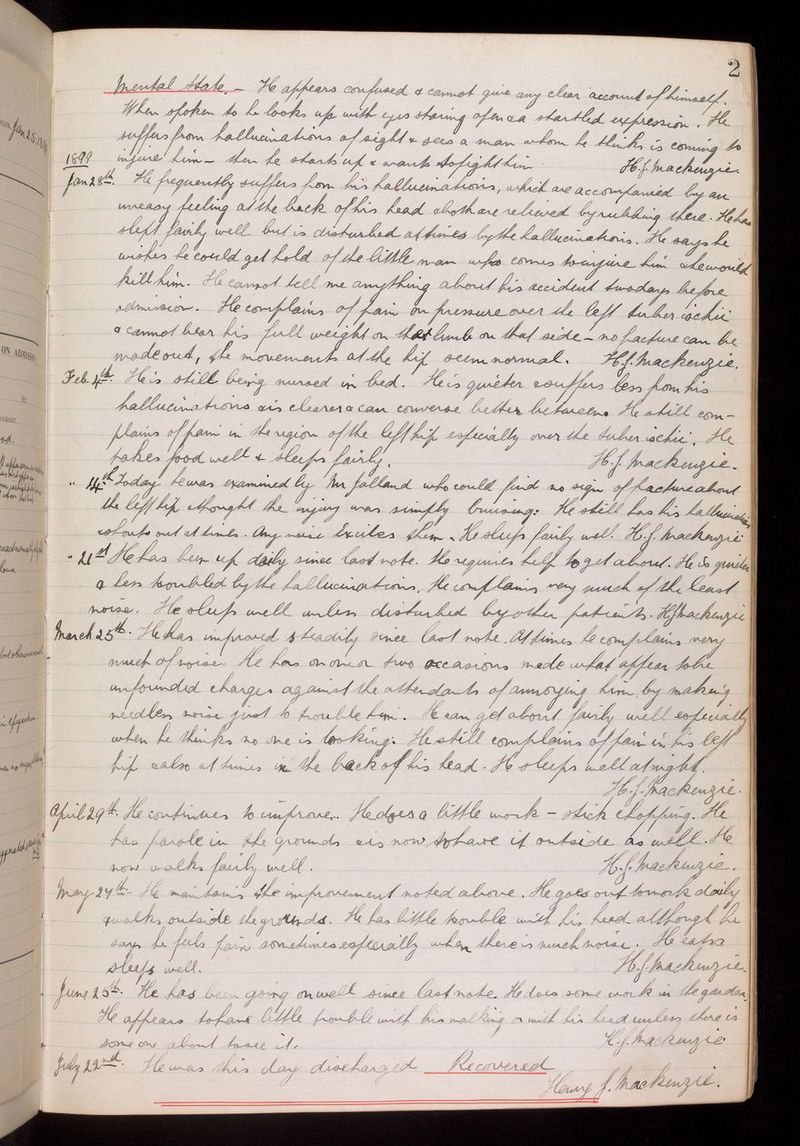 2
Mental State. - He appears confused & cannot give any clear account of himself.
When spoken to he looks up with eyes staring open & a startled expression. He
suffers from hallucinations of sight & sees a man whom he thinks is coming to
injure him - then he starts up & wants to fight him. H.J. Mackenzie.
1899
Jan 28th. He frequently suffers from his hallucinations, which are accompanied by an
uneasy feeling at the back of his head & both are relieved by rubbing there. He has
slept fairly well but is disturbed at times by the hallucinations. He says he
wishes he could get hold of the little man who comes to injure him & he would
kill him. He cannot tell me anything about his accident two days before
admission. He complains of pain on pressure over the left tuber ischii
& cannot bear his full weight on that limb on that side - no facture can be
made out, the movements at the hip seem normal. H.J. Mackenzie.
Feb. 4th. He is still being nursed in bed. He is quieter & suffers less from his
hallucinations & is clearer & can converse better between. He still com-
plains of pain in the region of the left hip especially over the tuber ischii. He
takes food well & sleeps fairly. H.J. Mackenzie.
" 14th Today he was examined by Mr Jalland who could find no sign of facture about
the left hip & thought the injury was simply bruising. He still has his hallucinations
& shouts out at times. Any noise excites them. He sleeps fairly well. H.J. Mackenzie
" 21st He has been up daily since last note. He requires help to get about. He is quieter
& less troubled by the hallucinations. He complains very much of the least
noise. He sleeps well unless disturbed by other patients. H.J. Mackenzie
March 25th. He has improved steadily since last note. At times he complains very
much of noise. He has on one or two occasions made what appear to be
unfounded charges against the attendants of annoying him by making
needless noise just to trouble him. He can get about fairly well especially
when he thinks no one is looking. He still complains of pain in his left
hip & also at times in the back of his head. He sleeps well at night.
H.J. Mackenzie.
April 29th. He continues to improve. He does a little work - stick chopping. He
has parole in the grounds & is now to have it outside as well. He
now walks fairly well. H.J. Mackenzie.
May 27th. He maintains the improvement noted above. He goes out to work daily
& walks outside the grounds. He has little trouble with his head although he
says he feels pain sometimes especially when there is much noise. He eats &
sleeps well. H.J. Mackenzie.
June 25th. He has been going on well since last note. He does some work in the garden.
He appears to have little trouble with his walking or with his head unless there is
some one about to see it. H.J. Mackenzie
July 22nd. He was this day discharged Recovered
Henry J. Mackenzie.